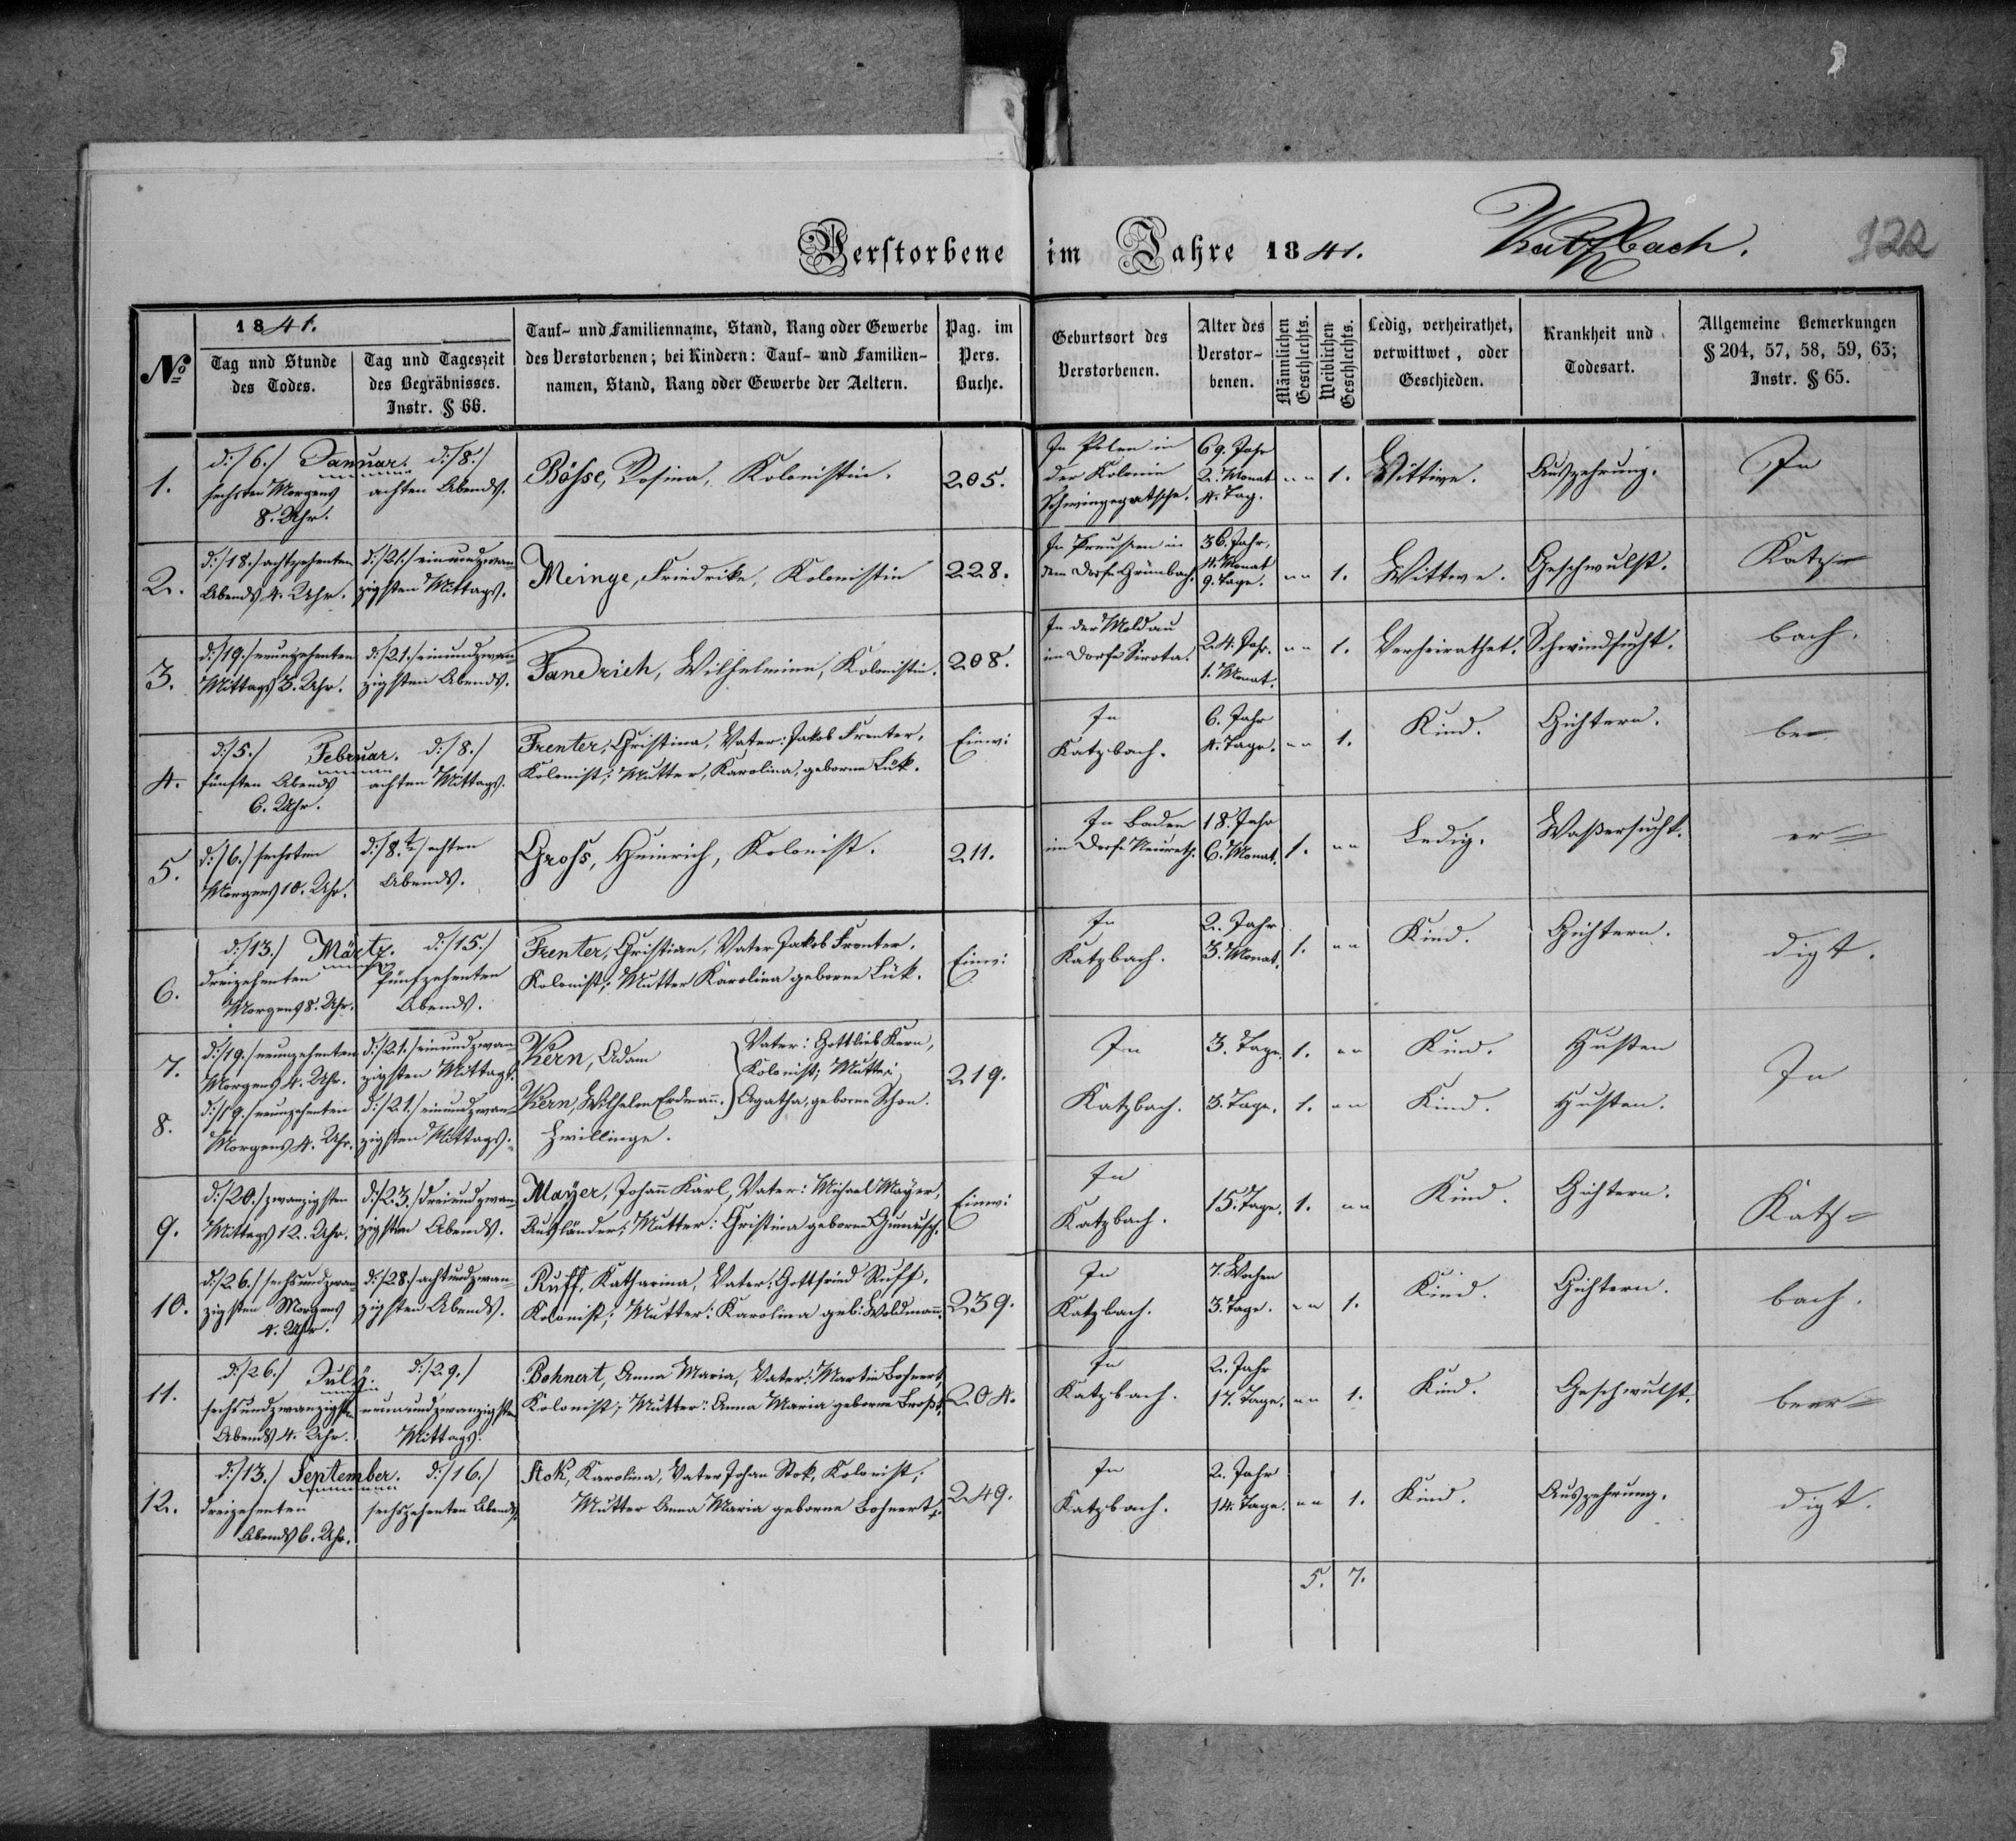 Verstorbene im Jahre 1841. Katzbach. 122
No
1841.
Tag und Stunde des Todes.
Tag und Tageszeit des Begräbnisses. Instr. § 66.
Tauf- und Familienname, Stand, Rang oder Gewerbe
des Verstorbenen; bei Kindern: Tauf- und Familien-
namen, Stand, Rang oder Gewerbe der Aeltern.
Pag. im Pers. Buche.
Geburtsort des Verstorbenen.
Alter des Verstor- benen.
Männlichen Geschlechts.
Weiblichen Geschlechts.
Ledig, verheirathet, verwittwet, oder Geschieden.
Krankheit und Todesart.
Allgemeine Bemerkungen
§ 204, 57, 58, 59, 63;
Instr. § 65.
1.
d: /6./ Januar. d: /8./
sechsten Morgens 8. Uhr.
achten Abends.
Bösse, Rosina, Kolonistin.
205.
In Polen in der Kolonie
69. Jahr 2. Monat 4. Tag.
" " 1.
Wittwe.
Auszehrung.
In
2.
d: /18./ achtzehenten Abends 4. Uhr.
d: /21./ einundzwan- zigsten Mittags.
Meinge, Friedrike, Kolonistin
228.
In Preussen in dem Dorfe Grünbach.
36. Jahr, 11. Monat 9. Tage.
" " 1.
Wittwe.
Geschwulst.
Katz-
3.
d: /19./ neunzehenten Mittags 3. Uhr.
d: /21./ einundzwan- zigsten Abends.
Fandrich, Wilhelmine, Kolonistin.
208.
In der Moldau im Dorfe Sirota.
24. Jahr. 1. Monat.
" " 1.
Verheirathet.
Schwindsucht.
bach.
4.
d: /5./ Februar. d: /8./
fünften Abends 6. Uhr.
achten Mittags.
Frenter, Christina, Vater: Jakob Frenter,
Kolonist; Mutter, Karolina, geborne Lük.
Einw:
In Katzbach.
6. Jahr 4. Tage.
" " 1.
Kind.
Gichtern.
be-
5.
d: /6./ sechsten Morgens 10. Uhr.
d: /8.te/ achten Abends.
Gross, Heinrich, Kolonist.
211.
In Baden im Dorfe Neureth.
18. Jahr 6. Monat.
1. " "
Ledig.
Waßersucht.
er-
6.
d: /13./ Märtz. d: /15./
dreizehenten Morgens 8. Uhr.
fünfzehenten Abends.
Frenter, Christian, Vater Jakob Frenter.
Kolonist; Mutter Karolina geborne Lük.
Einw:
In Katzbach.
2. Jahr 3. Monat.
1. " "
Kind.
Gichtern.
digt.
7.
d: /19./ neunzehenten Morgens 4. Uhr.
d: /21./ einundzwan- zigsten Mittags.
Kern, Adam
Vater: Gottlieb Kern,
Kolonist; Mutter:
Agatha, geborne Schon.
219.
In
3. Tage.
1. " "
Kind.
Husten
In
8.
d: /19./ neunzehenten Morgens 4. Uhr.
d: /21./ einundzwan- zigsten Mittags.
Kern, Wilhelm Erdmann.
Zwillinge.
Katzbach.
3. Tage.
1. " "
Kind.
Husten.
9.
d: /20./ zwanzigsten Mittags 12. Uhr.
d: /23./ dreiundzwan- zigsten Abends.
Mayer, Johann Karl, Vater: Michael Mayer,
Ausländer; Mutter: Christina geborne
Einw:
In Katzbach.
15. Tage.
1. " "
Kind.
Gichtern.
Katz-
10.
d: /26./ sechsundzwan- zigsten Morgens 4. Uhr.
d: /28./ achtundzwan- zigsten Abends.
Ruff, Katharina, Vater: Gottfried Ruff,
Kolonist; Mutter: Karolina geb: Woldmann.
239.
In Katzbach.
7. Wochen 3. Tage.
" " 1.
Kind.
Gichtern.
bach.
11.
d: /26./ July. d: /29./
sechsundzwanzigsten Abends 4. Uhr.
neunundzwanzigsten Mittags.
Bohnert, Anna Maria, Vater: Martin Bohnert,
Kolonist; Mutter: Anna Maria geborne
204.
In Katzbach.
2. Jahr 17. Tage.
" " 1.
Kind.
Geschwulst.
beer-
12.
d: /13./ September. d: /16./
dreizehenten Abends 6. Uhr.
sechszehenten Abends.
Stok, Karolina, Vater Johan Stok, Kolonist;
Mutter Anna Maria geborne Bohnert.
249.
In Katzbach.
2. Jahr 14. Tage.
" " 1.
Kind.
Auszehrung.
digt.
5. 7.